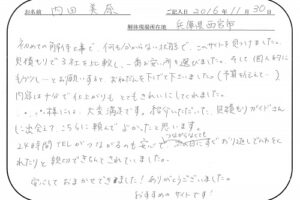 お名前 内田 美奈 ご記入日 2016年 11月 30日
解体現場所在地 兵庫県西宮市
初めての解体工事で、何も分からない状態で、このサイトを見つけました。
見積もりで3社を比較し、一番お安い所を選びました。そして、個人的に
お願いすると、おねだんを下げて下さいました。(予算
内容はナゼで仕上がりもとてもきれいにしてくれました。
様には、大変満足です。紹介いただいて、見積もりガイドさん
に出会えて、こちらに頼んでよかったと思います。
つながらなくても
24時間TELがつながるのも安心で 次の日にすぐ折り返しでんわをくれ
たりと親切できちんとされていました。
安心しておまかせできました!ありがとうございました。
おすすめのサイトです!